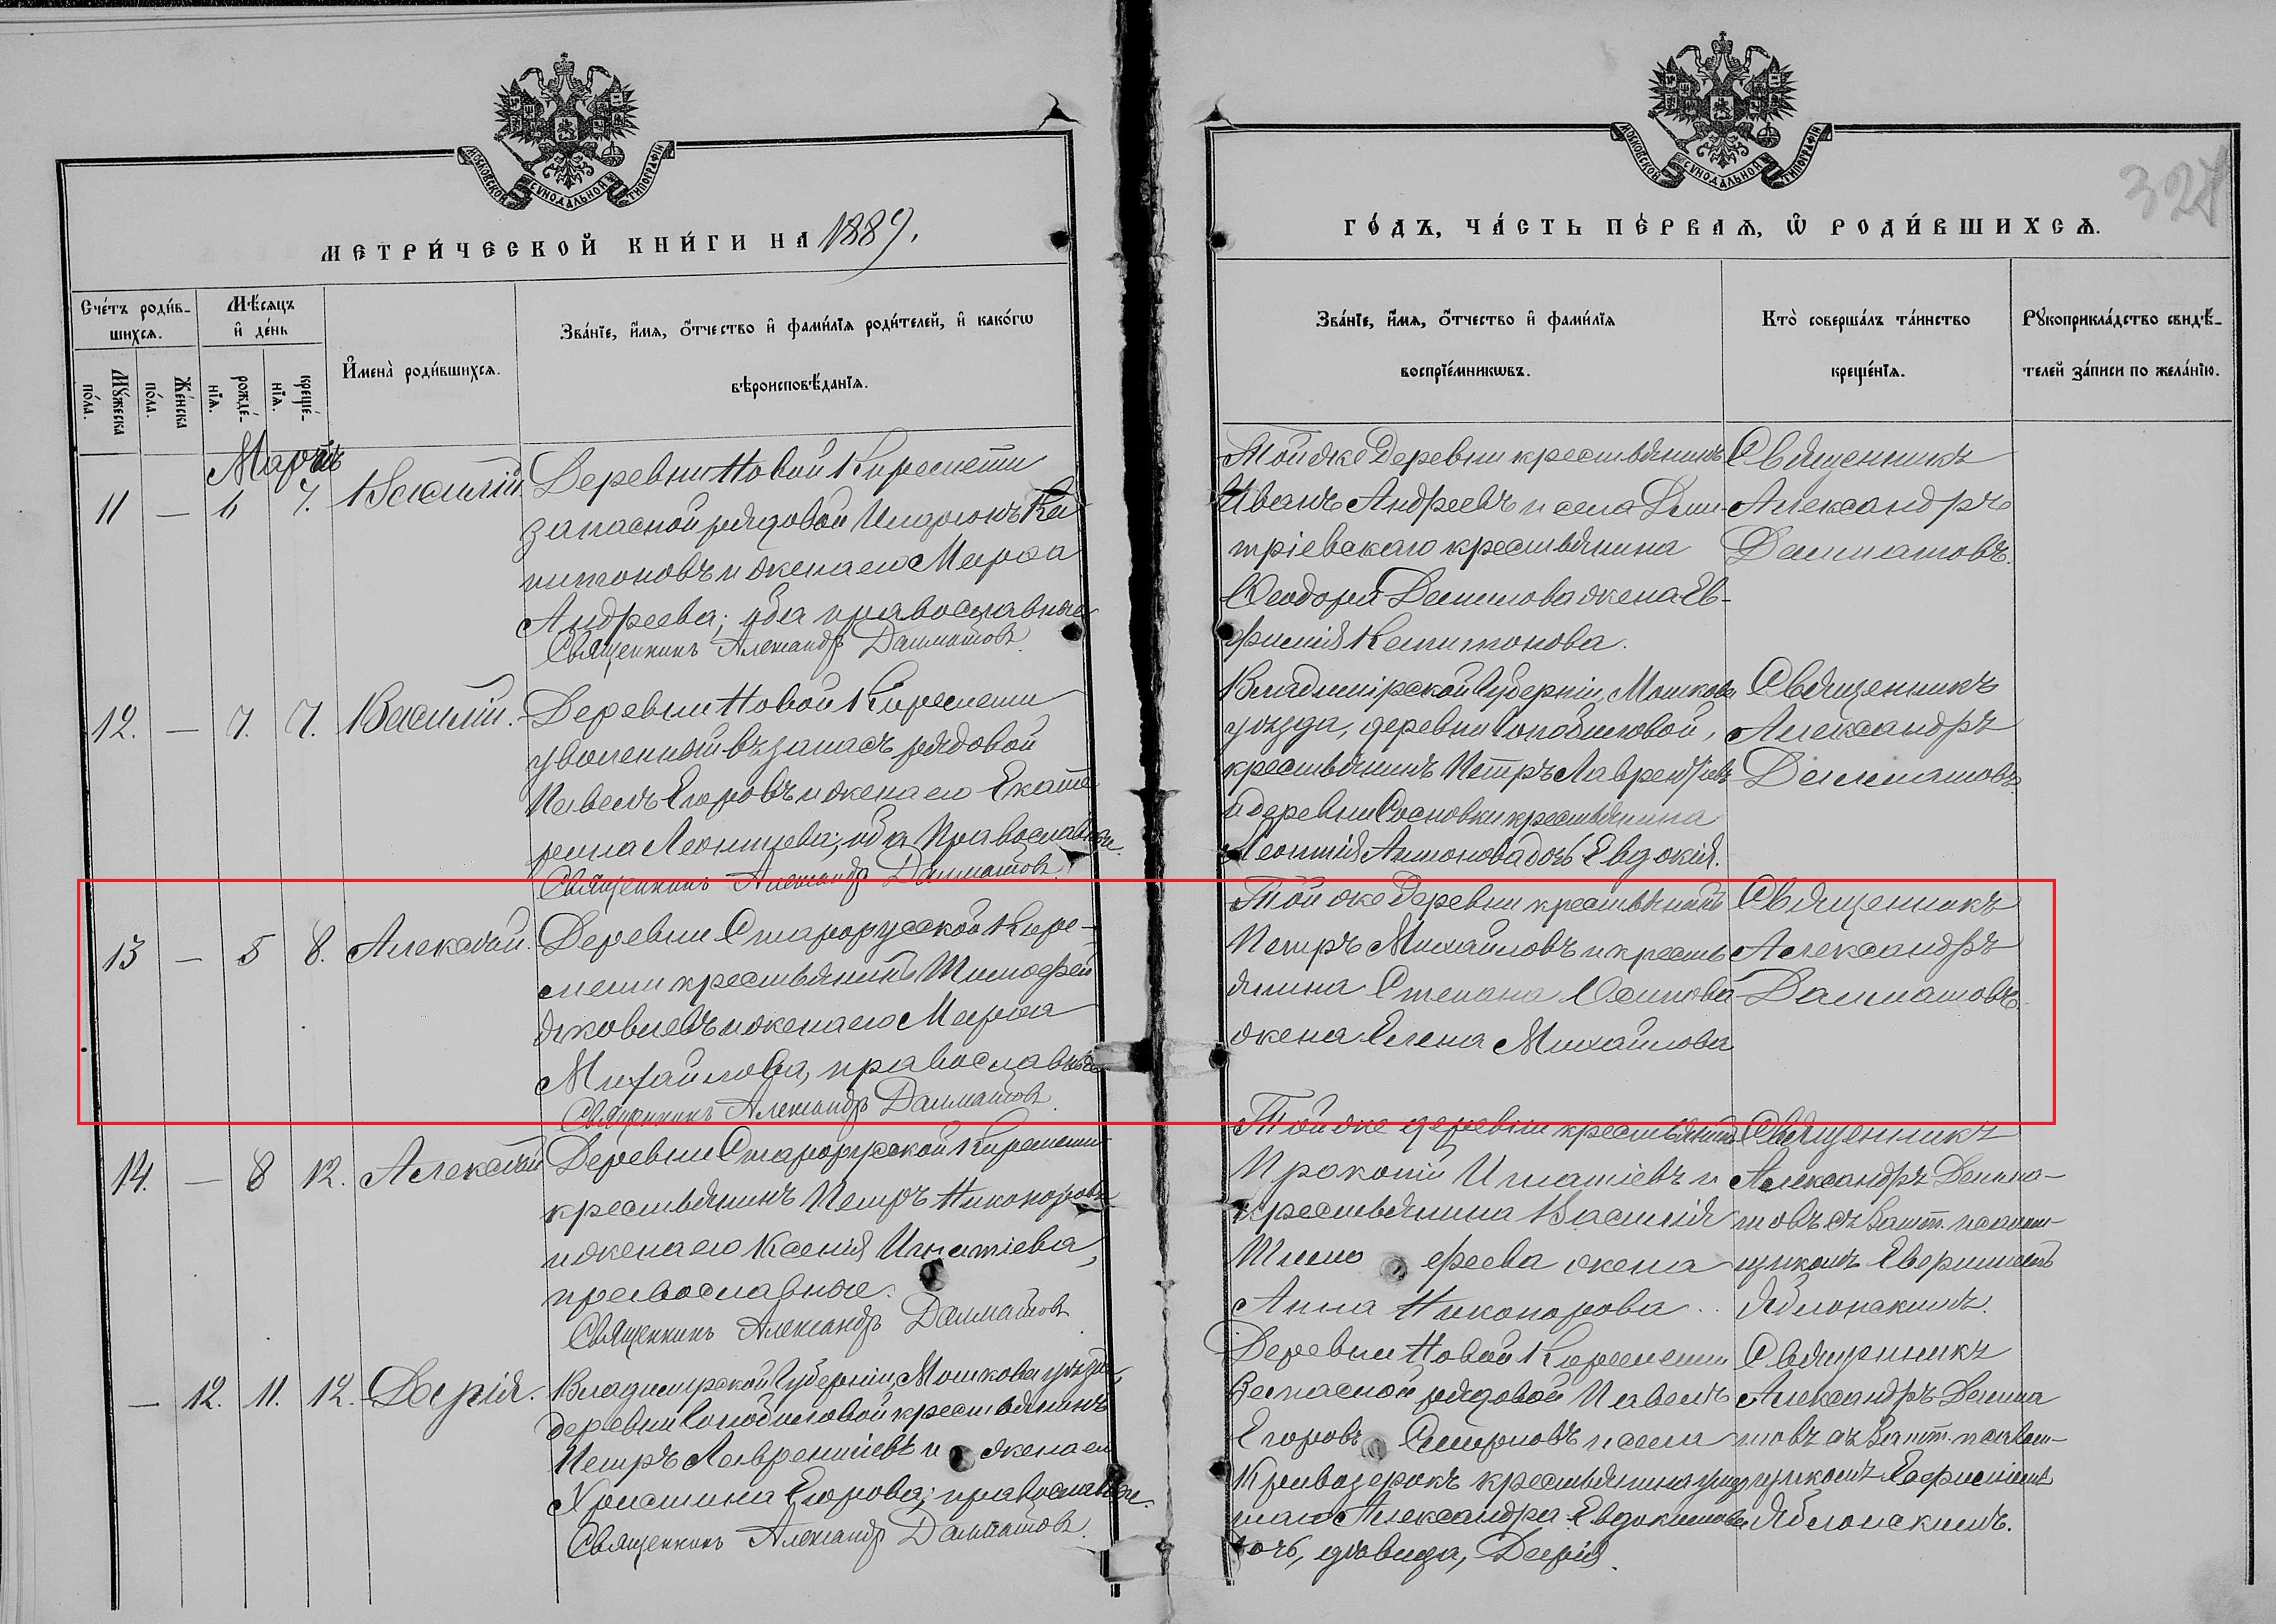 МОСКОВСКОЙ СѴНОДАЛЬНОЙ ТИПОГРАФІИ
МЕТРИ́ЧЕСКОЙ КНИ́ГИ НА 1889.
Сче́тъ роди́в-
шихся.
Мѣ́сяцъ
и҆ де́нь
Мꙋ́жеска
по́ла.
Же́нска
по́ла.
рожде́-
нїя.
креще́-
нїя.
И҆мена̀ роди́вшихся.
Зва́нїе, и҆́мя, ѻ҆́тчество и҆ фами́лїя роди́телей, и҆ како́гѡ
вѣроисповѣ́данїя.
Мартъ
11 — 6 7. Василій.
Деревни Новой Киремети
запасной рядовой Илдоюнъ Ка
питоновъ и жена его Марѳа
Андреева; оба православные
Священникъ Александръ Далматовъ.
12. — 7. 7. Василій.
Деревни Новой Киремети
уволенный въ запасъ рядовой
Павелъ Егоровъ и жена его Екате
рина Леонтьева; оба православные.
Священникъ Александръ Далматовъ.
13 — 5 8. Алексѣй.
Деревни Старорусской Кире-
мети крестьянинъ Тимофей
Яковлевъ и жена его Марѳа
Михайлова, православные
Священникъ Александръ Далматовъ
14. — 8 12. Алексѣй
Деревни Старорусской Киремети
крестьянинъ Петръ Никоноровъ
и жена его Ксенія Игнатіева,
православные.
Священникъ Александръ Далматовъ
— 12. 11. 12. Дарія.
Владимірской Губерніи, уѣзда,
деревни крестьянинъ
Петръ Лаврентіевъ и жена его
Христина Егорова; православные.
Священникъ Александръ Далматовъ.
МОСКОВСКОЙ СѴНОДАЛЬНОЙ ТИПОГРАФІИ
327
ГО́ДЪ, ЧА́СТЬ ПЕ́РВАЯ, Ѽ РОДИ́ВШИХСЯ.
Зва́нїе, и҆́мя, ѻ҆́тчество и҆ фами́лїя
воспрїе́мникѡвъ.
Кто̀ соверша́лъ та́инство
креще́нїя.
Рꙋкоприкла́дство свидѣ́-
телей за́писи по жела́нїю.
Той же деревни крестьянинъ
Иванъ Андреевъ и села Дми-
тріевскаго крестьянина
Ѳеодора Данилова жена Ев-
фимія Капитонова.
Священникъ
Александръ
Далматовъ.
Владимірской Губерніи,
уѣзда, деревни
крестьянинъ Петръ Лаврентіевъ
и деревни Сосновки крестьянина
Леонтія Антонова дочь Евдокія.
Священникъ
Александръ
Далматовъ
Той же деревни крестьянинъ
Петръ Михайловъ и кресть
янина Степана Осипова
жена Елена Михайлова
Священникъ
Александръ
Далматовъ.
Той же деревни крестьянинъ
Прокопій Игнатіевъ и
крестьянина Василія
Тимофеева жена
Анна Никонорова.
Священникъ
Александръ Далма-
товъ съ псалом-
щикомъ
Яблонскимъ.
Деревни Новой Киремети
Запасной рядовой Павелъ
Егоровъ Смирновъ и села
Кривозерокъ крестьянина
Александра Евдокимова
дочь, дѣвица, Дарія.
Священникъ
Александръ Далма
товъ съ псалом-
щикомъ
Яблонскимъ.